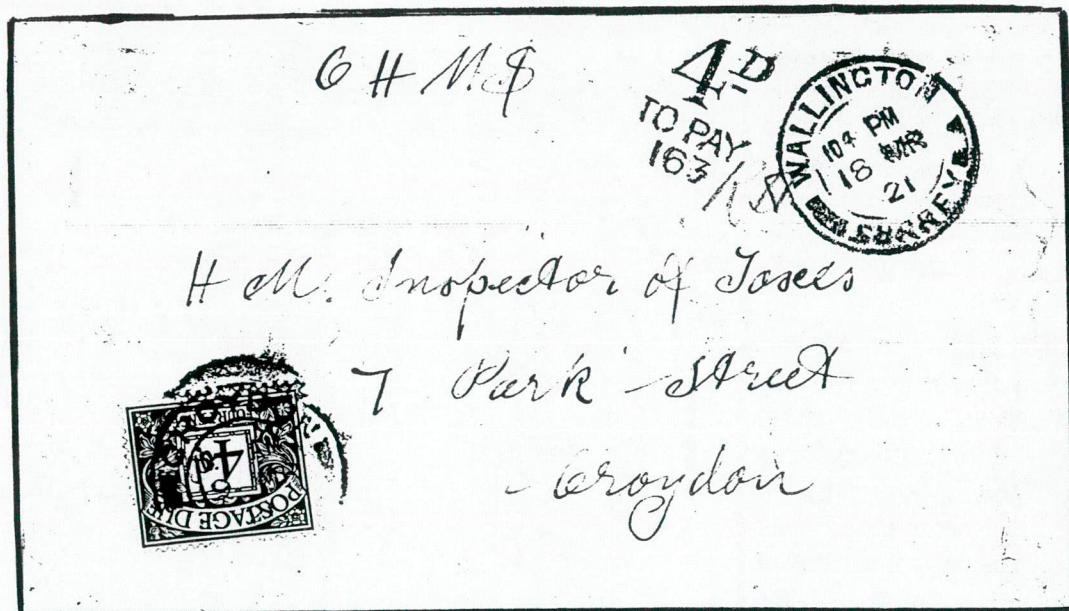 O H M.S
4D
TO PAY
163
WALLINGTON
SURREY
PM
18 MR
21
H M. Inspector of Taxes
7 Park Street
Croydon
FOUR
4
POSTAGE DUE